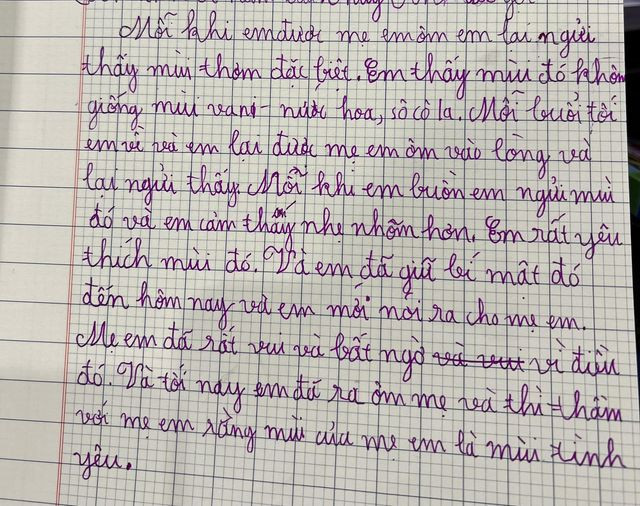 Mỗi khi em được mẹ em ôm em lại ngửi
thấy mùi thơm đặc biệt. Em thấy mùi đó khôn
giống mùi vani - nước hoa, sô cô la. Mỗi buổi tối
em về và em lại được mẹ em ôm vào lòng và
lại ngửi thấy. Mỗi khi em buồn em ngửi mùi
đó và em cảm thấy nhẹ nhõm hơn. Em rất yêu
thích mùi đó. Và em đã giữ bí mật đó
đến hôm nay và em mới nói ra cho mẹ em.
Mẹ em đã rất vui và bất ngờ và vui vì điều
đó. Và tối nay em đã ra ôm mẹ và thì thầm
với mẹ em rằng mùi của mẹ em là mùi tình
yêu.